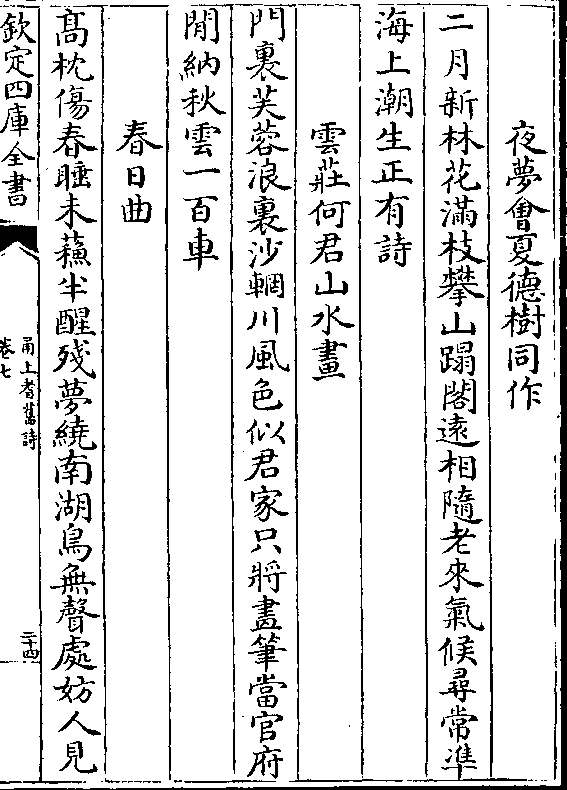 夜夢會夏德樹同作
二月新林花滿枝攀山蹋閣遠相隨老來氣候尋常準
海上潮生正有詩
雲莊何君山水畫
門裏芙蓉浪裏沙輞川風色似君家只將畫筆當官府
閒納秋雲一百車
春日曲
髙枕傷春睡未蘓半醒殘夢繞南湖鳥無聲處妨人見
欽定四庫全書
甬上耆舊詩
卷七
二十四